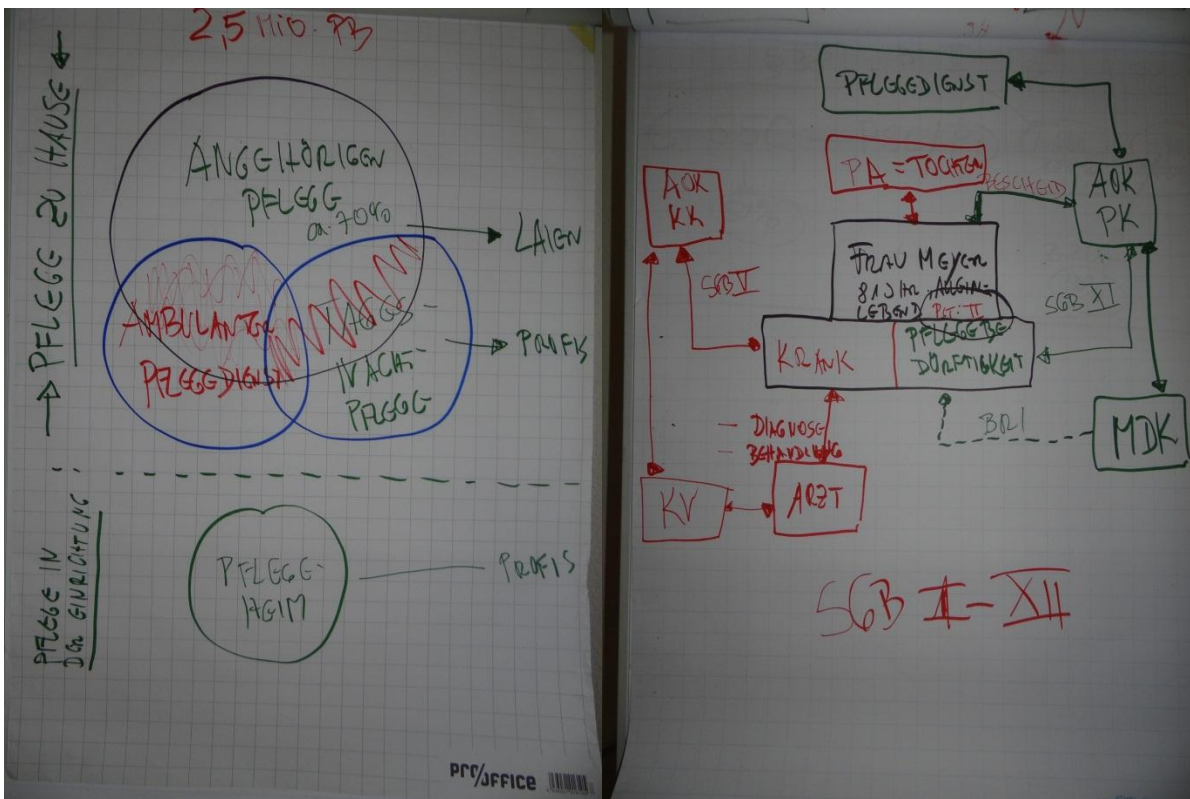 2,5 MIO. PB
PFLEGE ZU HAUSE
ANGEHÖRIGEN
PFLEGE
ca. 70%
LAIEN
AMBULANTER
PFLEGEDIENST
TAGES-
NACHT-
PFLEGE
PROFIS
PFLEGE IN
DER EINRICHTUNG
PFLEGE-
HEIM
PROFIS
PRO/OFFICE
PFLEGEDIENST
PA = TOCHTER
BESCHEID
AOK
KK
AOK
PK
FRAU MEYER
81 JHR ALLEIN-
LEBEND
SGB V
SGB XI
KRANK
PFLEGEBE
DÜRFTIGKEIT
- DIAGNOSE
- BEHANDLUNG
BRI
MDK
KV
ARZT
SGB I - XII